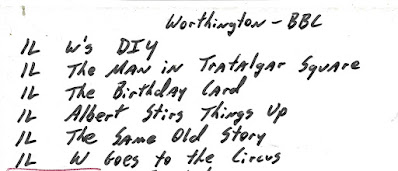 Worthington - BBC
IL W's DIY
IL The Man in Trafalgar Square
IL The Birthday Card
IL Albert Stirs Things Up
IL The Same Old Story
IL W Goes to the Circus